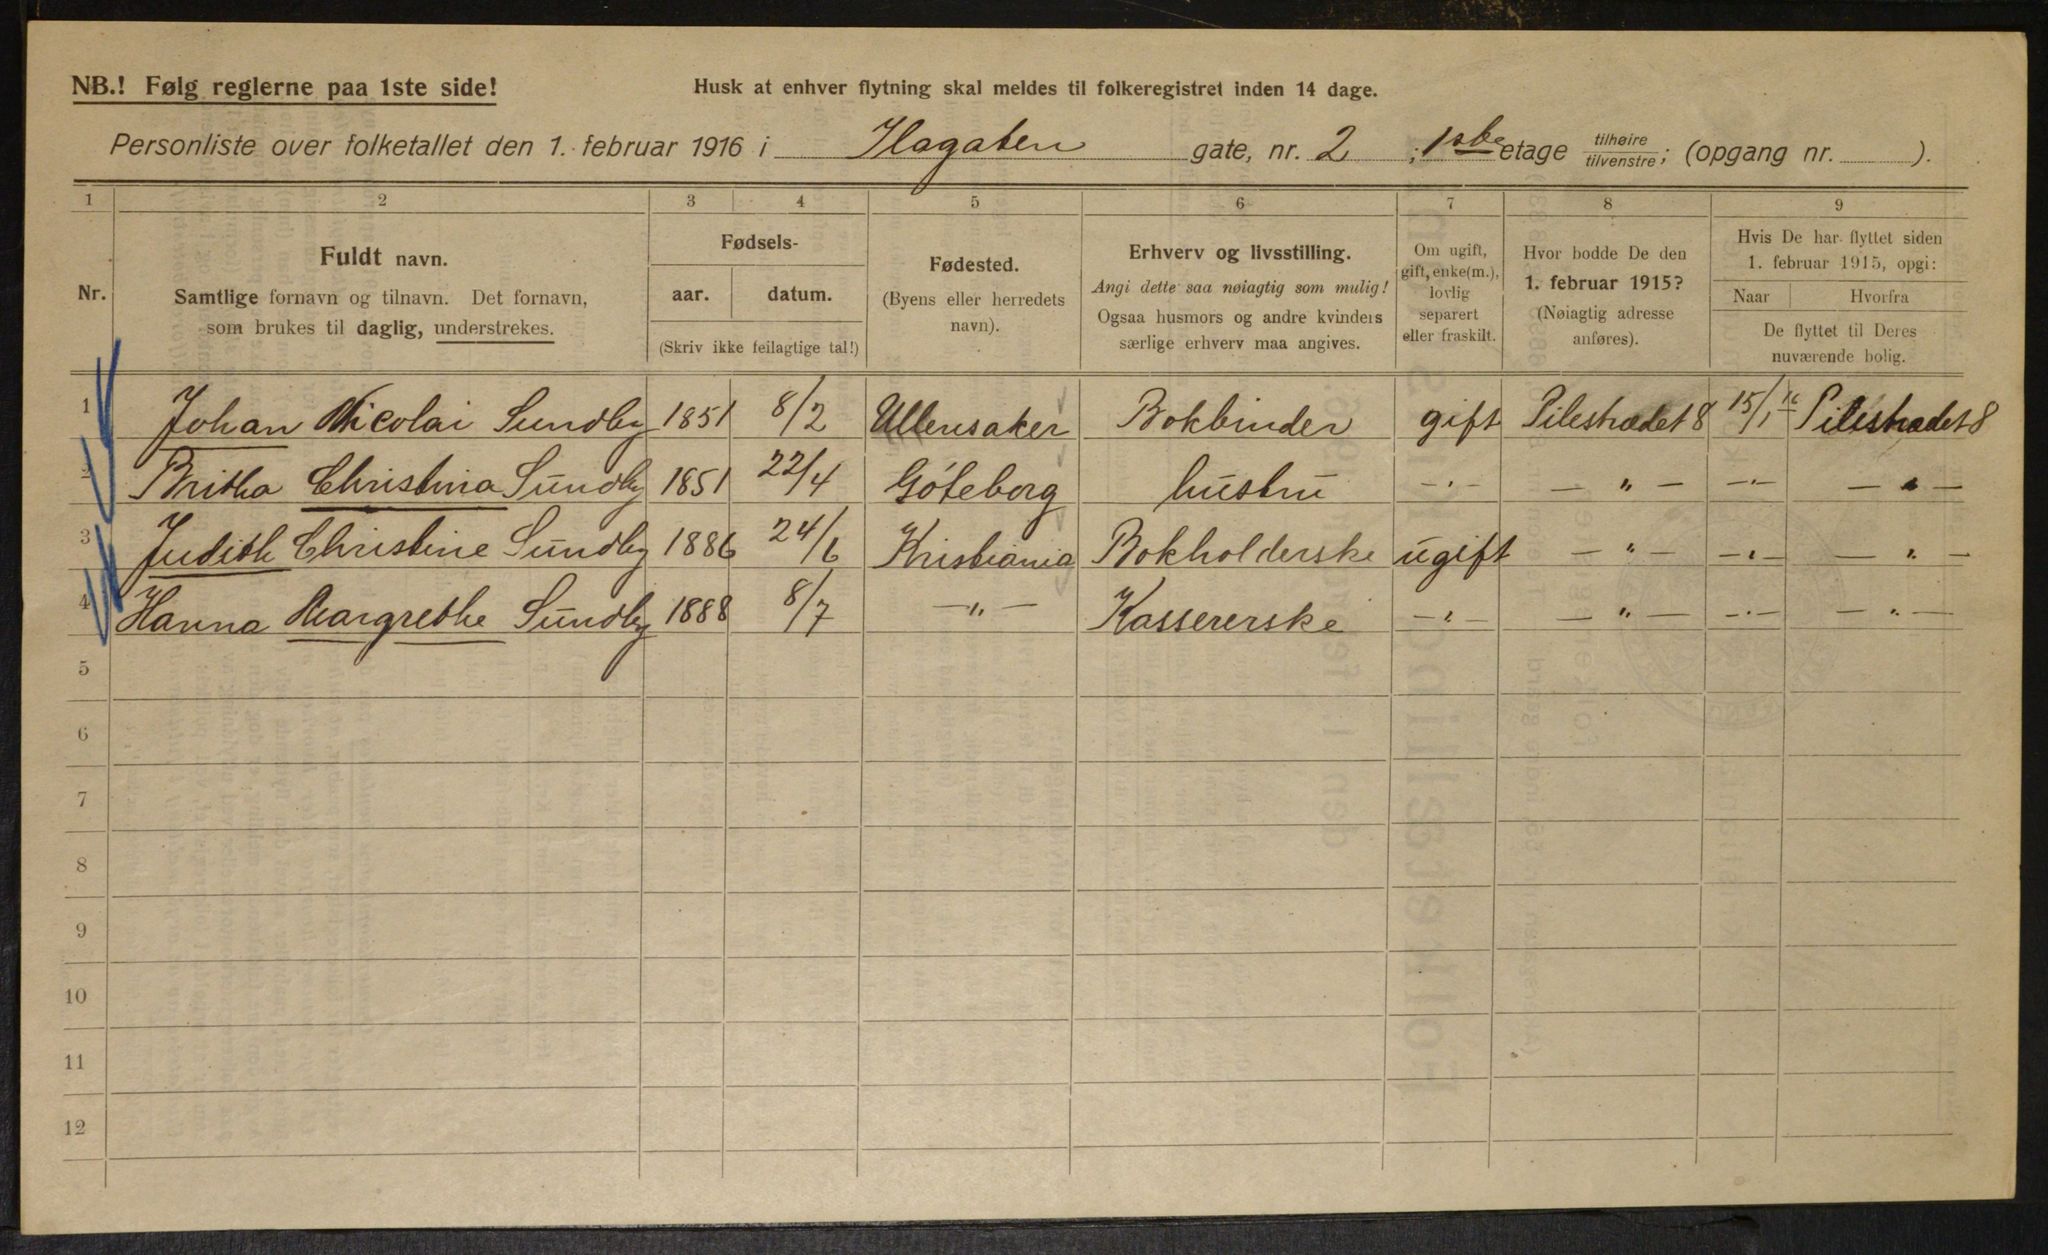 NB.! Følg reglerne paa 1ste side! Husk at enhver flytning skal meldes til folkeregistret inden 14 dage.
Personliste over folketallet den 1. februar 1916 i Ilagaten gate, nr. 2 ; 1ste etage tilhøire/tilvenstre; (opgang nr. ).
1 2 3 4 5 6 7 8 9
Nr.
Fuldt navn.
Samtlige fornavn og tilnavn. Det fornavn,
som brukes til daglig, understrekes.
Fødsels-
aar. datum.
(Skriv ikke feilagtige tal!)
Fødested.
(Byens eller herredets
navn).
Erhverv og livsstilling.
Angi dette saa nøiagtig som mulig!
Ogsaa husmors og andre kvinders
særlige erhverv maa angives.
Om ugift,
gift, enke(m.),
lovlig
separert
eller fraskilt.
Hvor bodde De den
1. februar 1915?
(Nøiagtig adresse
anføres).
Hvis De har flyttet siden
1. februar 1915, opgi:
Naar Hvorfra
De flyttet til Deres
nuværende bolig.
1 Johan Nicolai Sundby 1851 8/2 Ullensaker Bokbinder gift Pilestrædet 8 15/1 16 Pilestrædet 8
2 Britha Christina Sundby 1851 22/4 Göteborg hustru —„— — „ — —„— — „ —
3 Judith Christine Sundby 1886 24/6 Kristiania Bokholderske ugift — „ — —„— — „ —
4 Hanna Margrethe Sundby 1888 8/7 —„— Kassererske —„— — „ — —„— — „ —
5
6
7
8
9
10
11
12